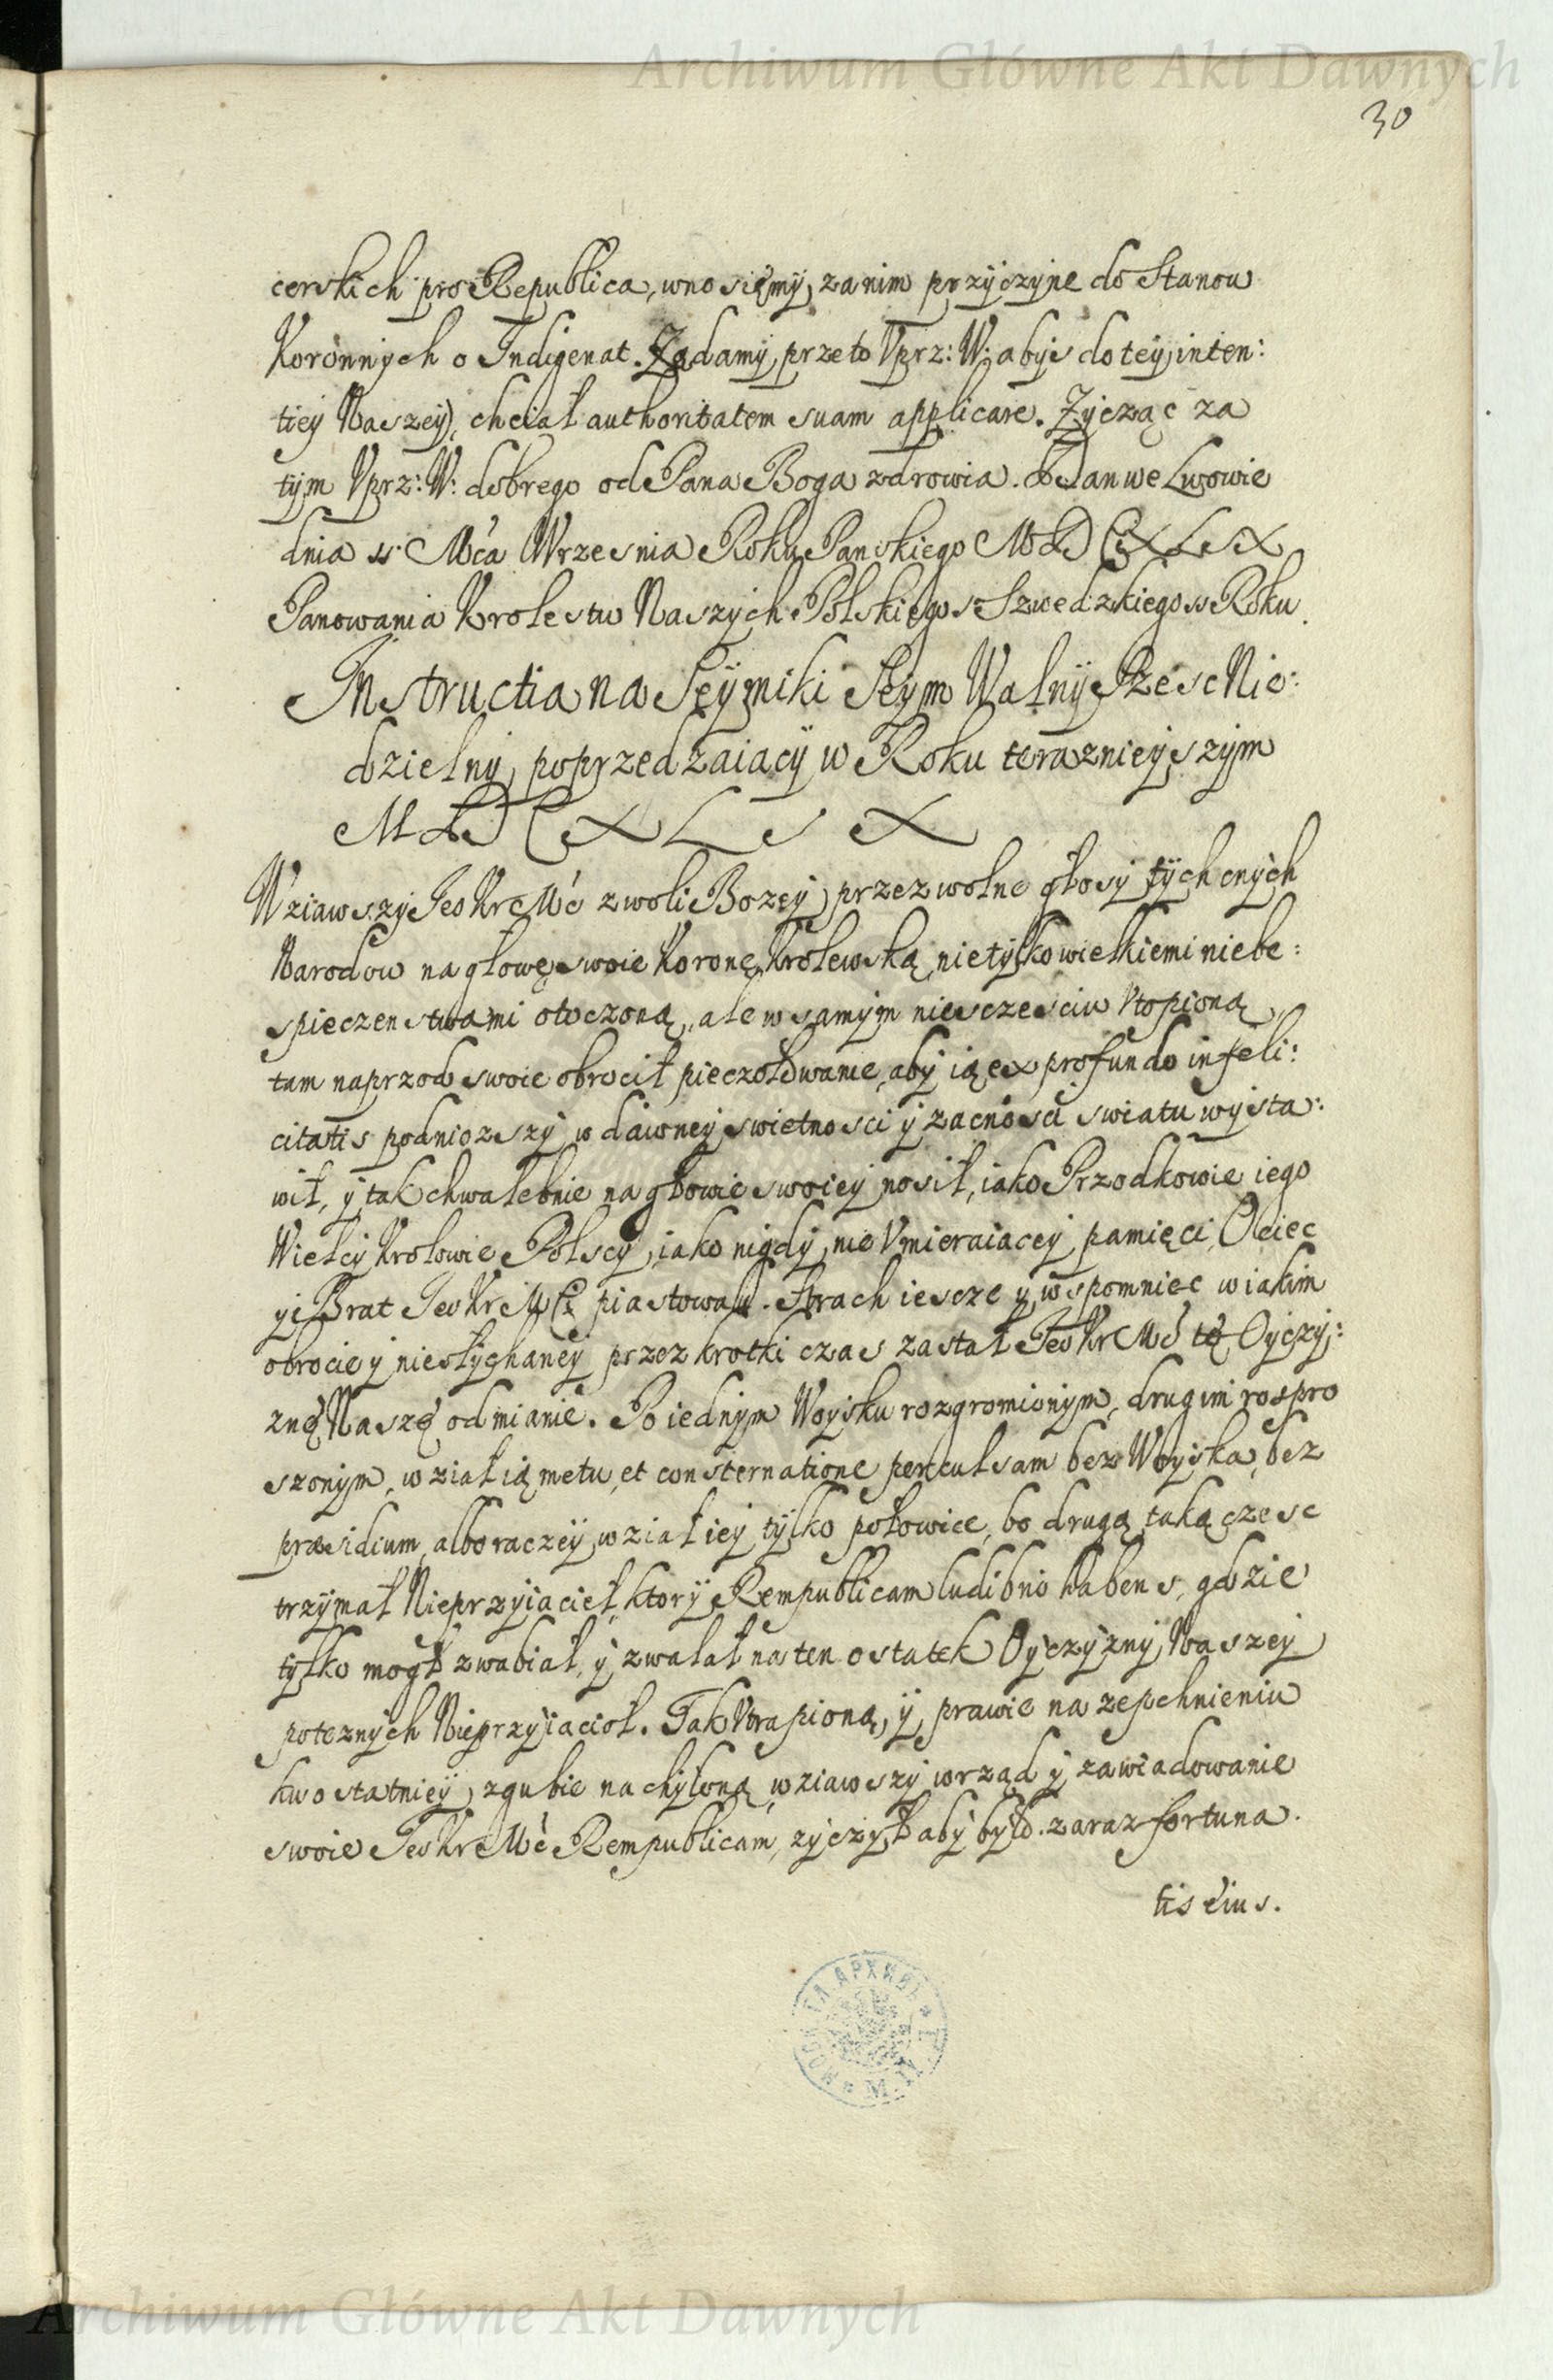 Archiwum Główne Akt Dawnych
30
cerskich pro Republica, wnosięmy, za nim przyczyne do Stanow
Koronnych o Indigenat. Ządamy, przeto Vprz: W: abys do tey, inten:
tiey Naszey, chciał authoritatem suam applicare. Zycząc za
tym Vprz: W: dobrego od Pana Boga zdrowia. Dan we Lwowie
dnia Mca Wrzesnia Roku Panskiego MDCXLIX
Panowania Krolestw Naszych Polskiego Szwedzkiego Roku.
Instructia na Seymiki Seym Walny Szesc Nie:
dzielny, poprzedzaiacy w Roku terazniey,szym
MDCXLIX
Wziawszy Jeo Kr Mć z woli Bozey, przez wolne głosy tych cnych
Narodow na głowę swoie Koronę Krolewską, nie tylko wielkiemi niebe:
spieczenstwami otoczoną, ale w samym niesczesciu Vtopioną,
tam naprzod swoie obrocił pieczołowanie, aby ią ex profundo infeli:
citatis podniozszy w dawney swietnosci y zacnosci swiatu wysta:
wił, y tak chwalebnie na głowie swoiey nosił, iako Przodkowie iego
Wielcy Krolowie Polscy, iako nigdy, nie Vmieraiacey pamięci, Ociec
yi Brat Jeo Kr Mci piastowali. Strach iescze y wspomniec w iakim
obrocie y niesłychaney przez krotki czas zastał Jeo Kr Mć tę Oyczy:
znę Naszę odmianie. Po iednym Woysku rozgromionym, drugim rospro
szonym, wział ią metu, et consternatione perculsam bez Woyska, bez
præsidium, albo raczey, wział iey tylko połowice, bo drugą taką czesc
trzymał Nieprzyiaciel, ktory Rempublicam ludibrio habens, gdzie
tylko mogł zwabiał, y zwałał na ten ostatek Oyczyzny Naszey
poteznych Nieprzyiacioł. Tak Vtrapioną, y, prawie na zepchnieniu
ku ostatniey, zgubie nachyloną, wziawszy w rząd y zawiadowanie
swoie Jeo Kr Mć Rempublicam, zyczył aby był zaraz fortuna.
tis eius.
Archiwum Główne Akt Dawnych